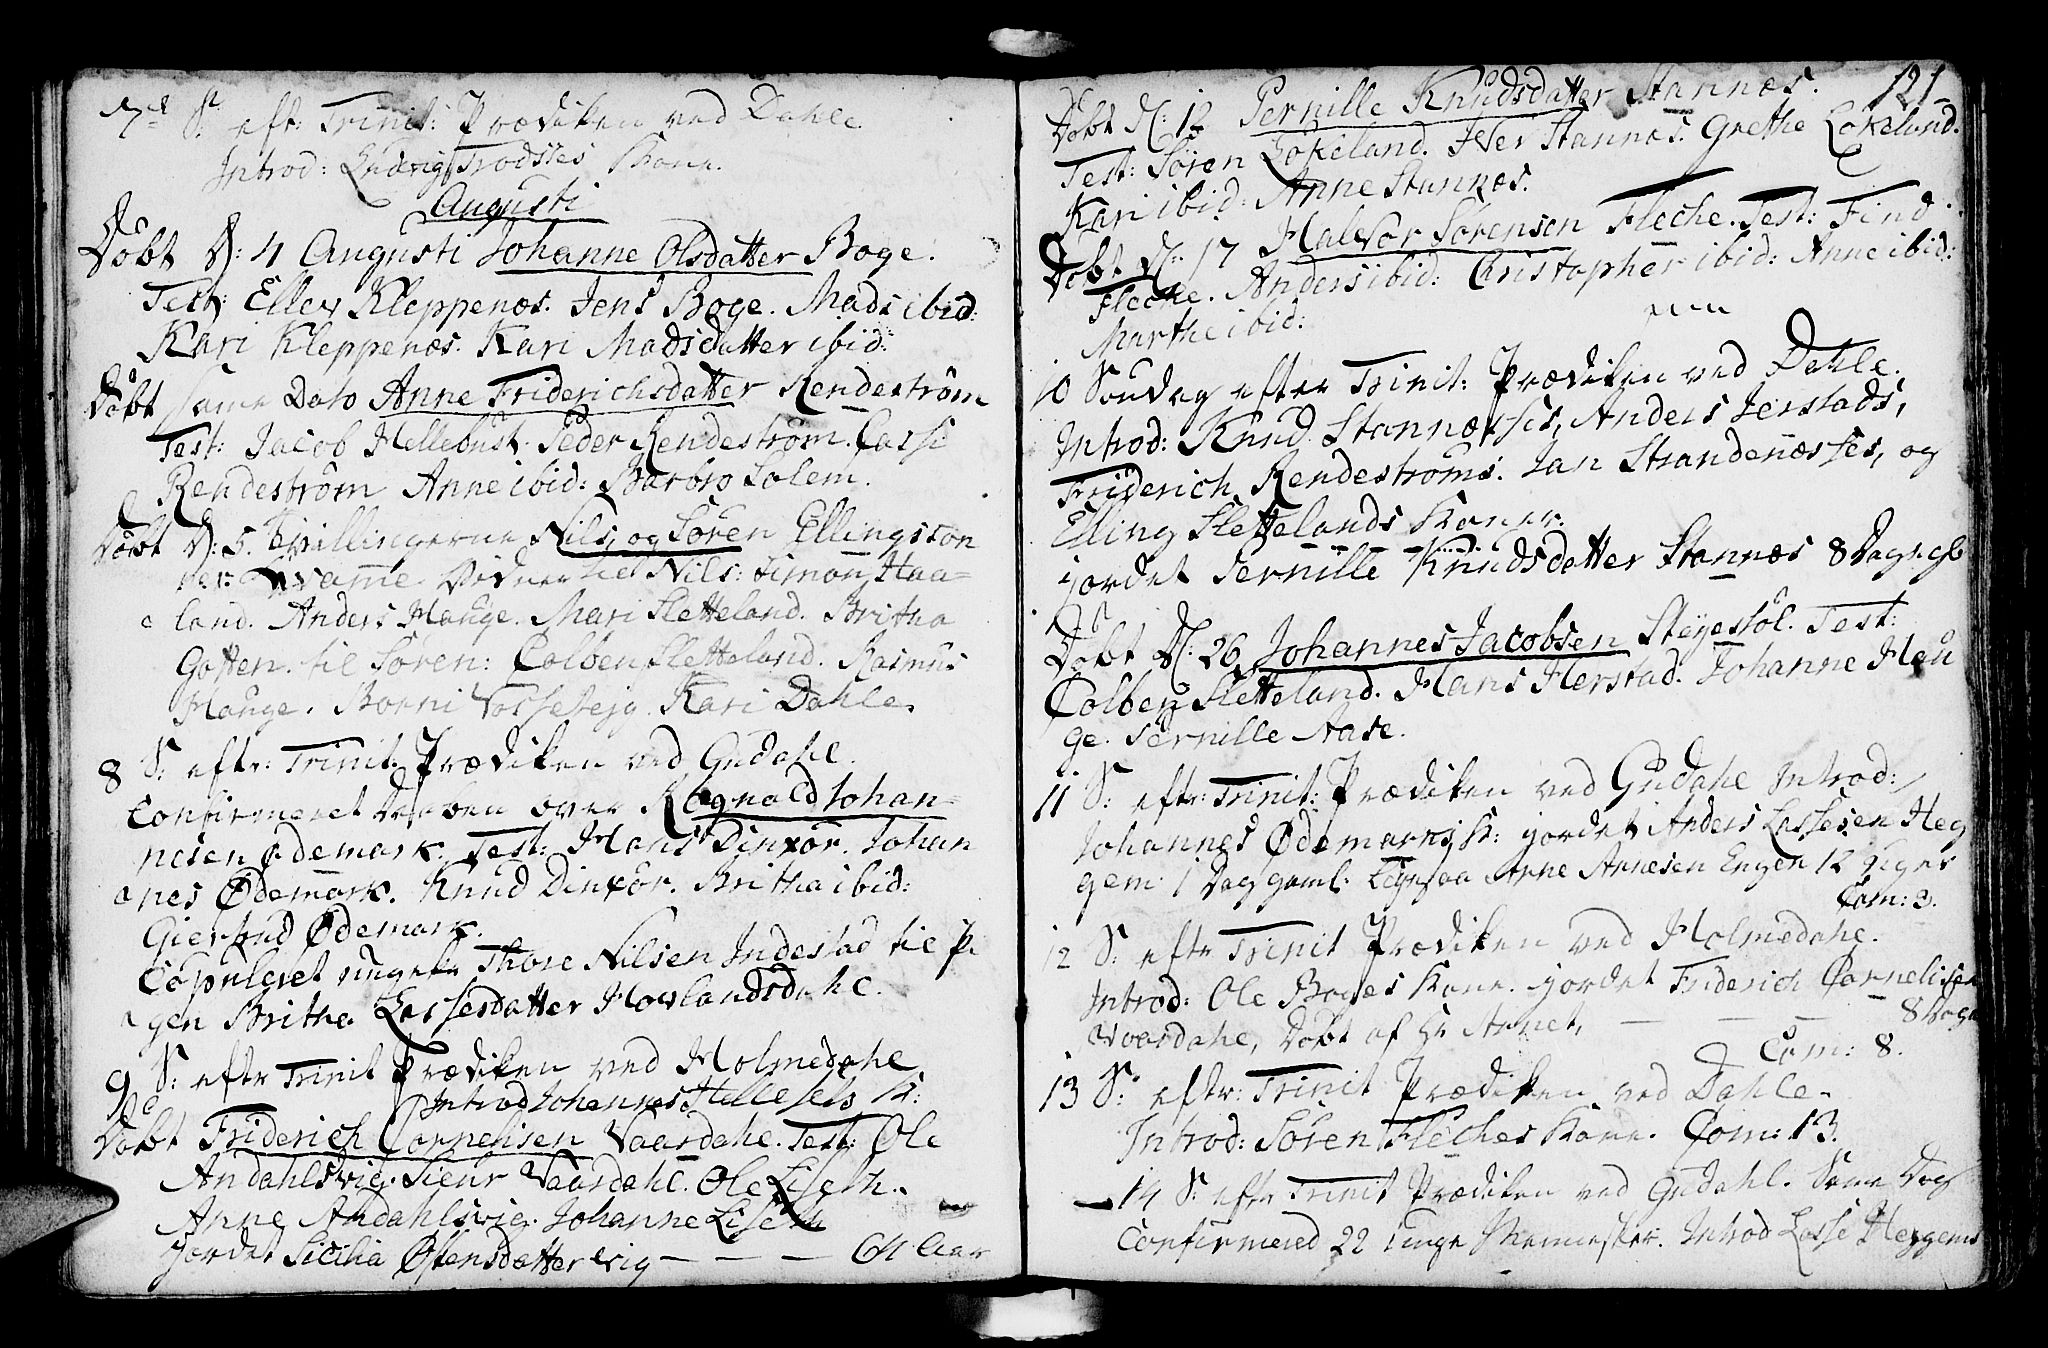 7de S: eft: Trinit: Prædiken ved Dahle
Introd: Ludvig Trodsies Kone.
Augusti
Döbt D: 4 Augusti Johanne Olsdatter Boge.
Test: Ellev Kleppenæs. Jens Boge. Mads ibid:
Kari Kleppenæs. Kari Madsdatter ibid:
Döbt samme Dato Anne Friderichsdatter Rendeström
Test: Jacob Hellebust. Peder Rendeström. Lasse
Rendeström Anne ibid: Barbro Solem.
Döbt D: 5. Tvillingerne Nils, og Sören Ellingssön
ner Qvamme Vidner til Nils: Simon Haa=
land. Anders Hauge. Mari Sletteland. Britha
Gotten. til Sören: Colben Sletteland. Rasmus
Hauge. Borni Kari Dahle.
8 S: efter: Trinit: Prædiken ved Gudahl.
Confirmeret Daaben over Ragnald Johan=
nesen Ødemark. Test: Hans Dinxör. Johan
nes Ødemark. Knud Dinxör. Britha ibid:
Giertrud Ødemark.
Copuleret ungek: Thore Nilsen Indestad til pi
gen Britha Lassesdatter Hovlandsdahl.
9 S: efter Trinit Prædiken ved Holmedahl
Introd Johannes Hellesels K:
Döbt Friderich Cornelisen Vaardahl. Test: Ole
Andahlsvig. Sieur Vaardahl. Ole Liseth.
Anne Andahlsvig. Johanne Liseth
jordet Sicilia Ostensdatter vig — — — 64 Aar
121
Döbt D: 12 Pernille Knudsdatter Stannæs.
Test: Sören Lökeland. Iver Stannæs. Grethe Lökeland.
Kari ibid: Anne Stannæs.
Döbt D: 17 Halvor Sörensen Fleche. Test: Find
Fleche. Anders ibid: Christopher ibid: Anne ibid:
Marthe ibid:
10 Söndag efter Trinit: Prædiken ved Dahle.
Introd: Knud Stannæsses, Anders Jerstads,
Friderich Rendeströms. Jan Strandenæsses, og
Elling Slettelands Koner.
jordet Pernille Knudsdatter Stannæs 8 Dage gl
Döbt D: 26 Johannes Jacobsen Steyestöl. Test:
Colben Sletteland. Hans Herstad. Johanne Hau
ge. Pernille Aase.
11 S: efter: Trinit: Prædiken ved Gudahl Introd:
Johannes Ødemarks K: jordet Anders Lassesen Heg
gem 1 Dag gaml: Ligesaa Arne Arnesen Engen 12 Uger
Com: 3.
12 S: efter Trinit Prædiken ved Holmedahl.
Introd: Ole Boges Kone. jordet Friderich Cornelisen
Vaardahl, Döbt af Hr Arnet, — — — 8 Dage
Com: 8.
13 S: efter: Trinit Prædiken ved Dahle.
Introd: Sören Fleches Kone. Com: 13.
14 S: efter Trinit Prædiken ved Gudahl. Same Dag
Confirmered 22 unge Mennesker. Introd Lasse Heggems